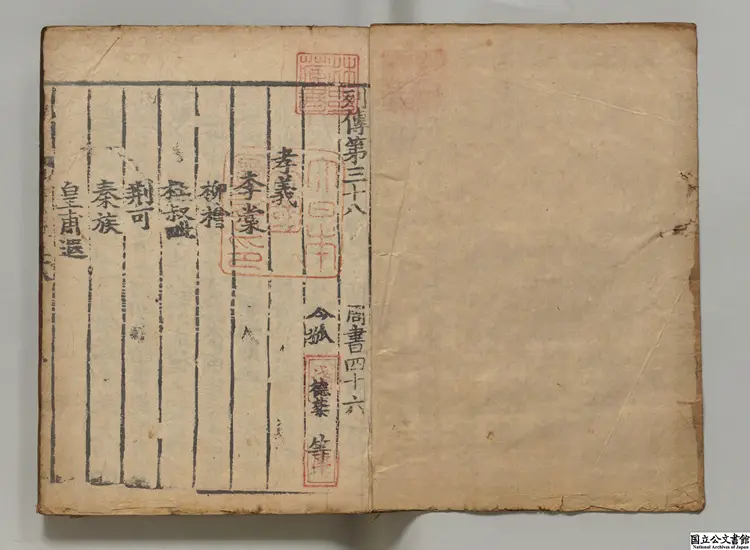 列傳第三十八 周書四十六
令狐 德棻 等
孝義
李棠
柳檜
杜叔毗
荆可
秦族
皇甫遐
國立公文書館
National Archives of Japan